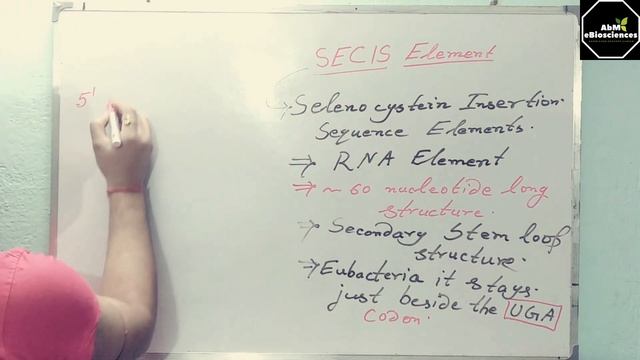 AbM
eBiosciences
SECIS Element
5'
→ Selenocystein Insertion
Sequence Elements.
⇒ RNA Element
⇒ ~ 60 nucleotide long
structure.
⇒ Secondary Stem loop
structure.
⇒ Eubacteria it stays
just beside the UGA
Codon.